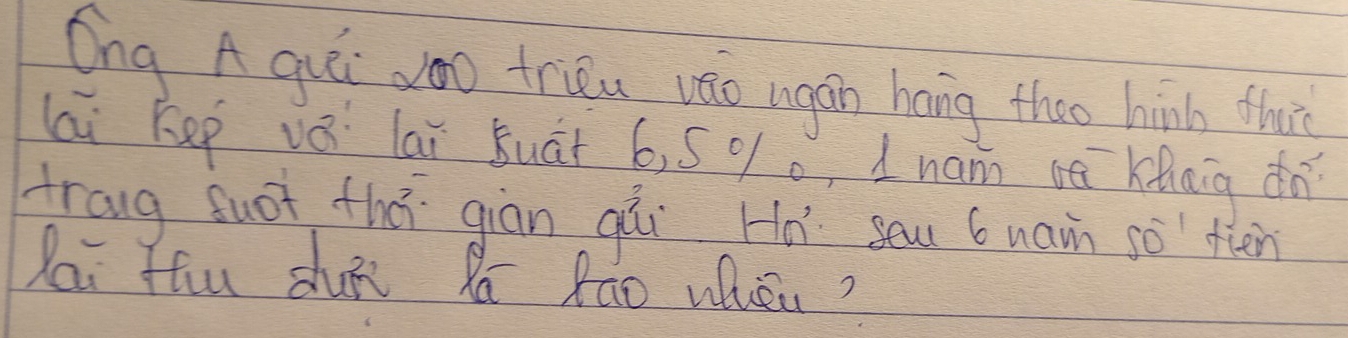 Ông A guửi 200 triệu vào ngân hàng theo hình thức
lãi kép với lãi suất 6,5%, 1 năm và không đổi
trong suốt thời gian gửi Hỏi sau 6 năm số tiền
lãi thu được là bao nhiêu?